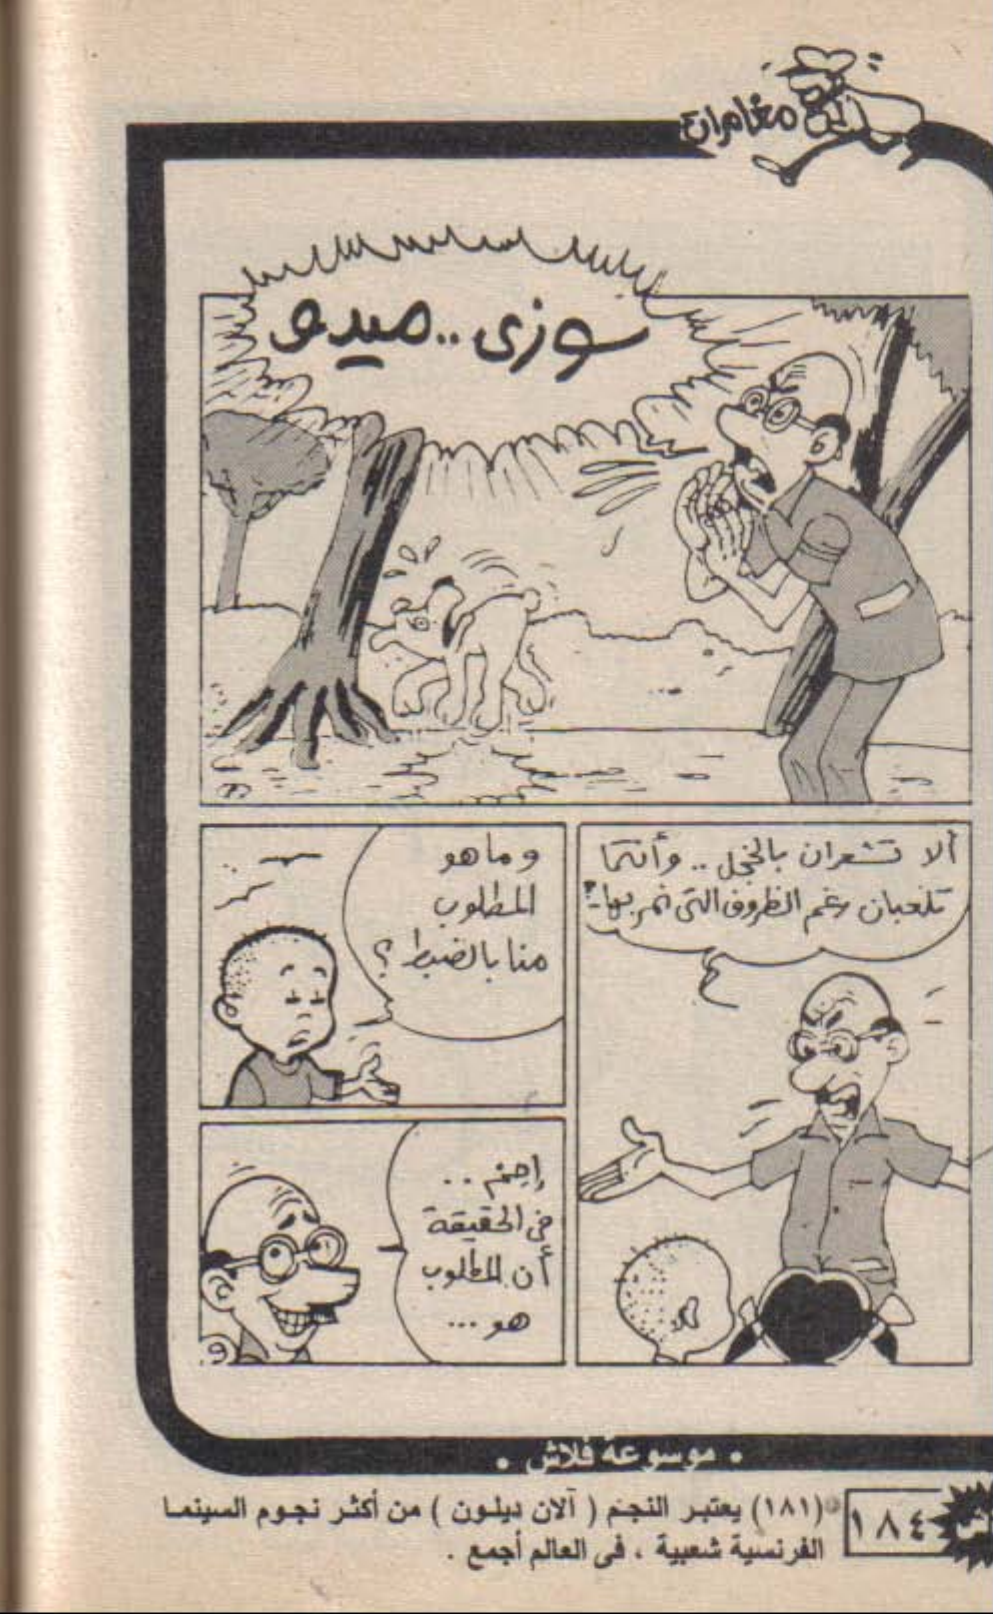 مغامرات
سوزى .. ميدو
ألا تشعران بالخجل .. وأنتما
تلعبان رغم الظروف التى نمر بها ..؟
وما هو
المطلوب
منا بالضبط ؟
إحم ..
فى الحقيقة
أن المطلوب
هو ...
• موسوعة فلاش •
(١٨١) يعتبر النجم ( آلان ديلون ) من أكثر نجوم السينما
الفرنسية شعبية ، فى العالم أجمع .
١٨٤